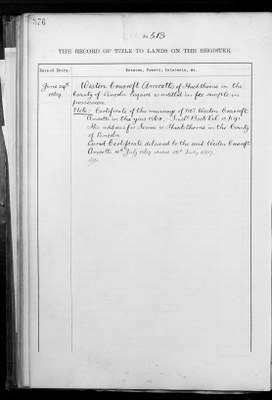 376
No 513
THE RECORD OF TITLE TO LANDS ON THE REGISTER
Date of Entry.
Owners, Powers, Cautions, &c.
June 24th
1869
Weston Cracroft Amcotts of Hackthorne in the
County of Lincoln Esquire is entitled in fee simple in
possession
Note. Certificate of the marriage of Mr Weston Cracroft
Amcotts in the year
His address for Service is Hackthorne in the County
of Lincoln
Land Certificate delivered to the said Weston Cracroft
Amcotts July 1869 dated July 1869